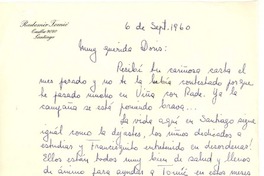 Radomiro Tomic
Casilla
Santiago
6 de Sept. 1960
Muy querida Doris:
Recibí tu cariñosa carta el
mes pasado y no te la había contestado porque
he estado mucho en Viña con Rado. Ya la
campaña se está poniendo brava...
La vida aquí en Santiago sigue
igual como la dejaste, los niños dedicados a
estudiar y Francisquito entretenido en desordenar!
Ellos están todos muy bien de salud y llenos
de ánimo para ayudar a Tomic en estos meses